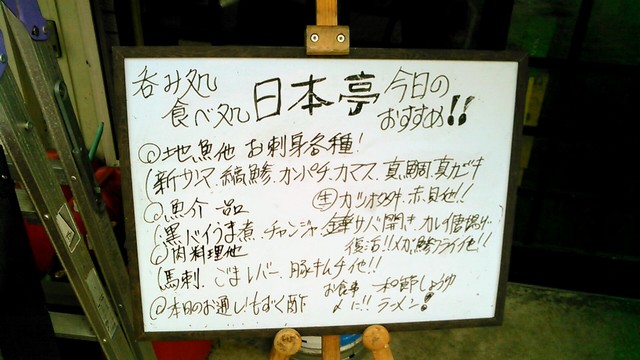 呑み処
食べ処 日本亭 今日の
おすすめ!!
◎地魚他 お刺身各種!
(新サンマ.縞鯵.カンパチ.カマス.真鯛.真ガキ
生カツオ 赤貝他!!
◎魚介一品
(黒バイうま煮.チャンジャ.サバ開き.カレイ唐揚げ
復活!!メガ鯵フライ他!!
◎肉料理他
(馬刺.ごまレバー.豚キムチ他!!
◎本日のお通し!もずく酢
お食事 和節しょうゆ
〆に!! ラーメン!